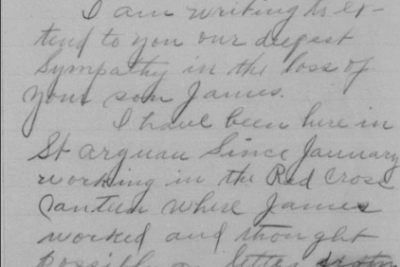 I am writing to ex-
tend to you our deepest
sympathy in the loss of
your son James.
I have been here in
St Aignan Since January
working in the Red Cross
Canteen where James
worked and thought
possibly a letter from